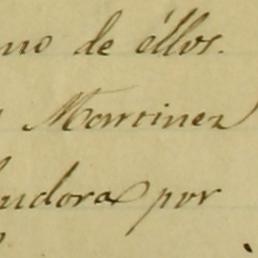 mo de éllos.
Marsinez
ludora por